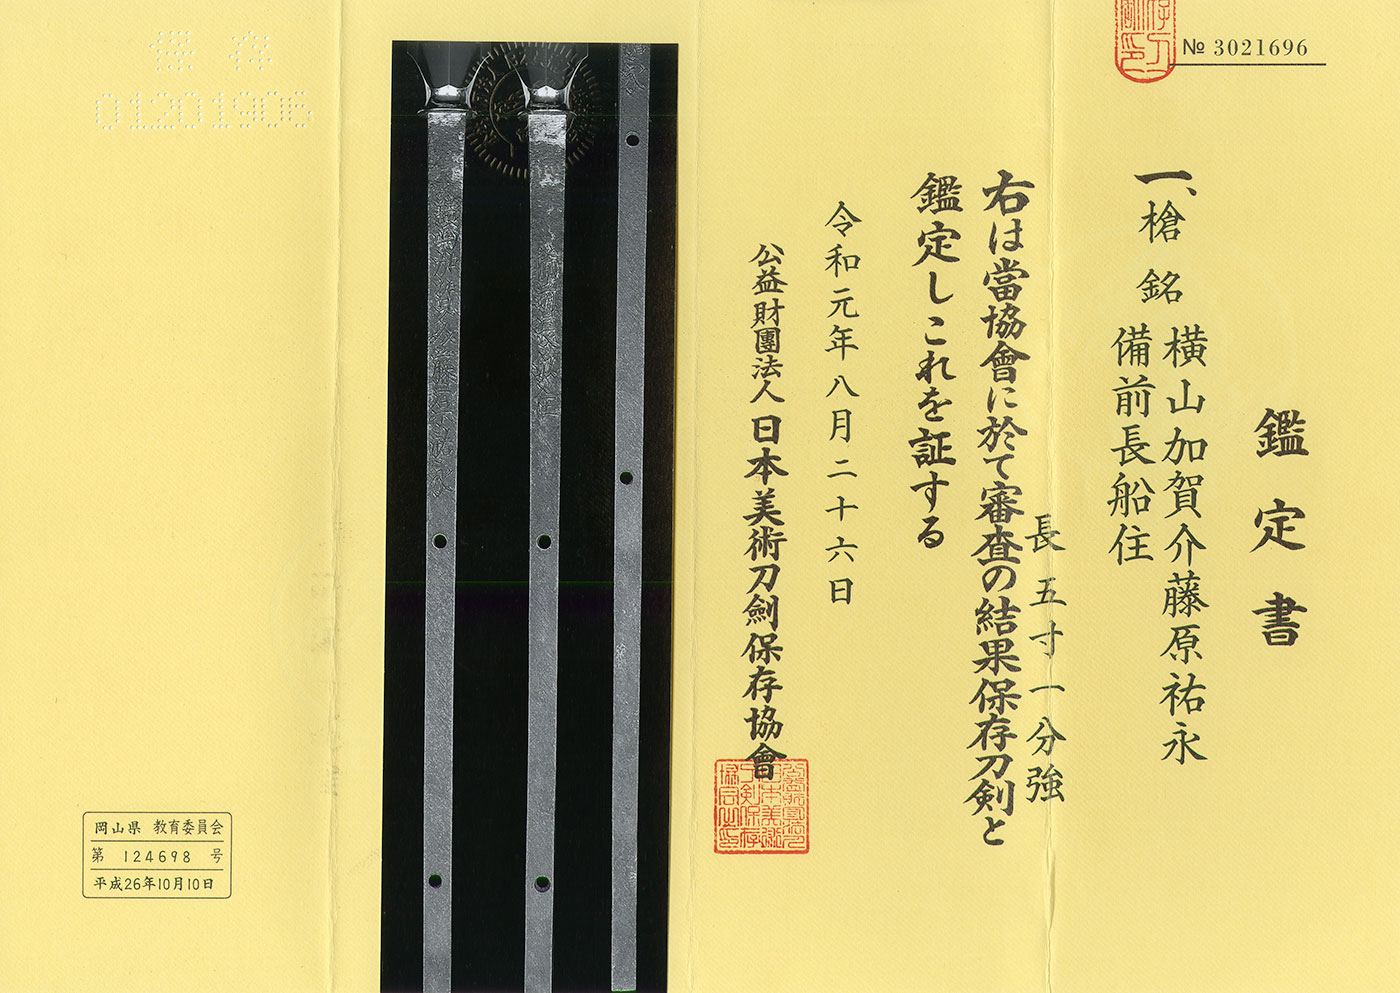 № 3021696
鑑定書
一、槍 銘 横山加賀介藤原祐永
備前長船住
長 五寸一分強
右は當協會に於て審査の結果保存刀剣と
鑑定しこれを証する
令和元年八月二十六日
公益財團法人 日本美術刀劍保存協會
保存
01201906
岡山県 教育委員会
第 124698 号
平成26年10月10日